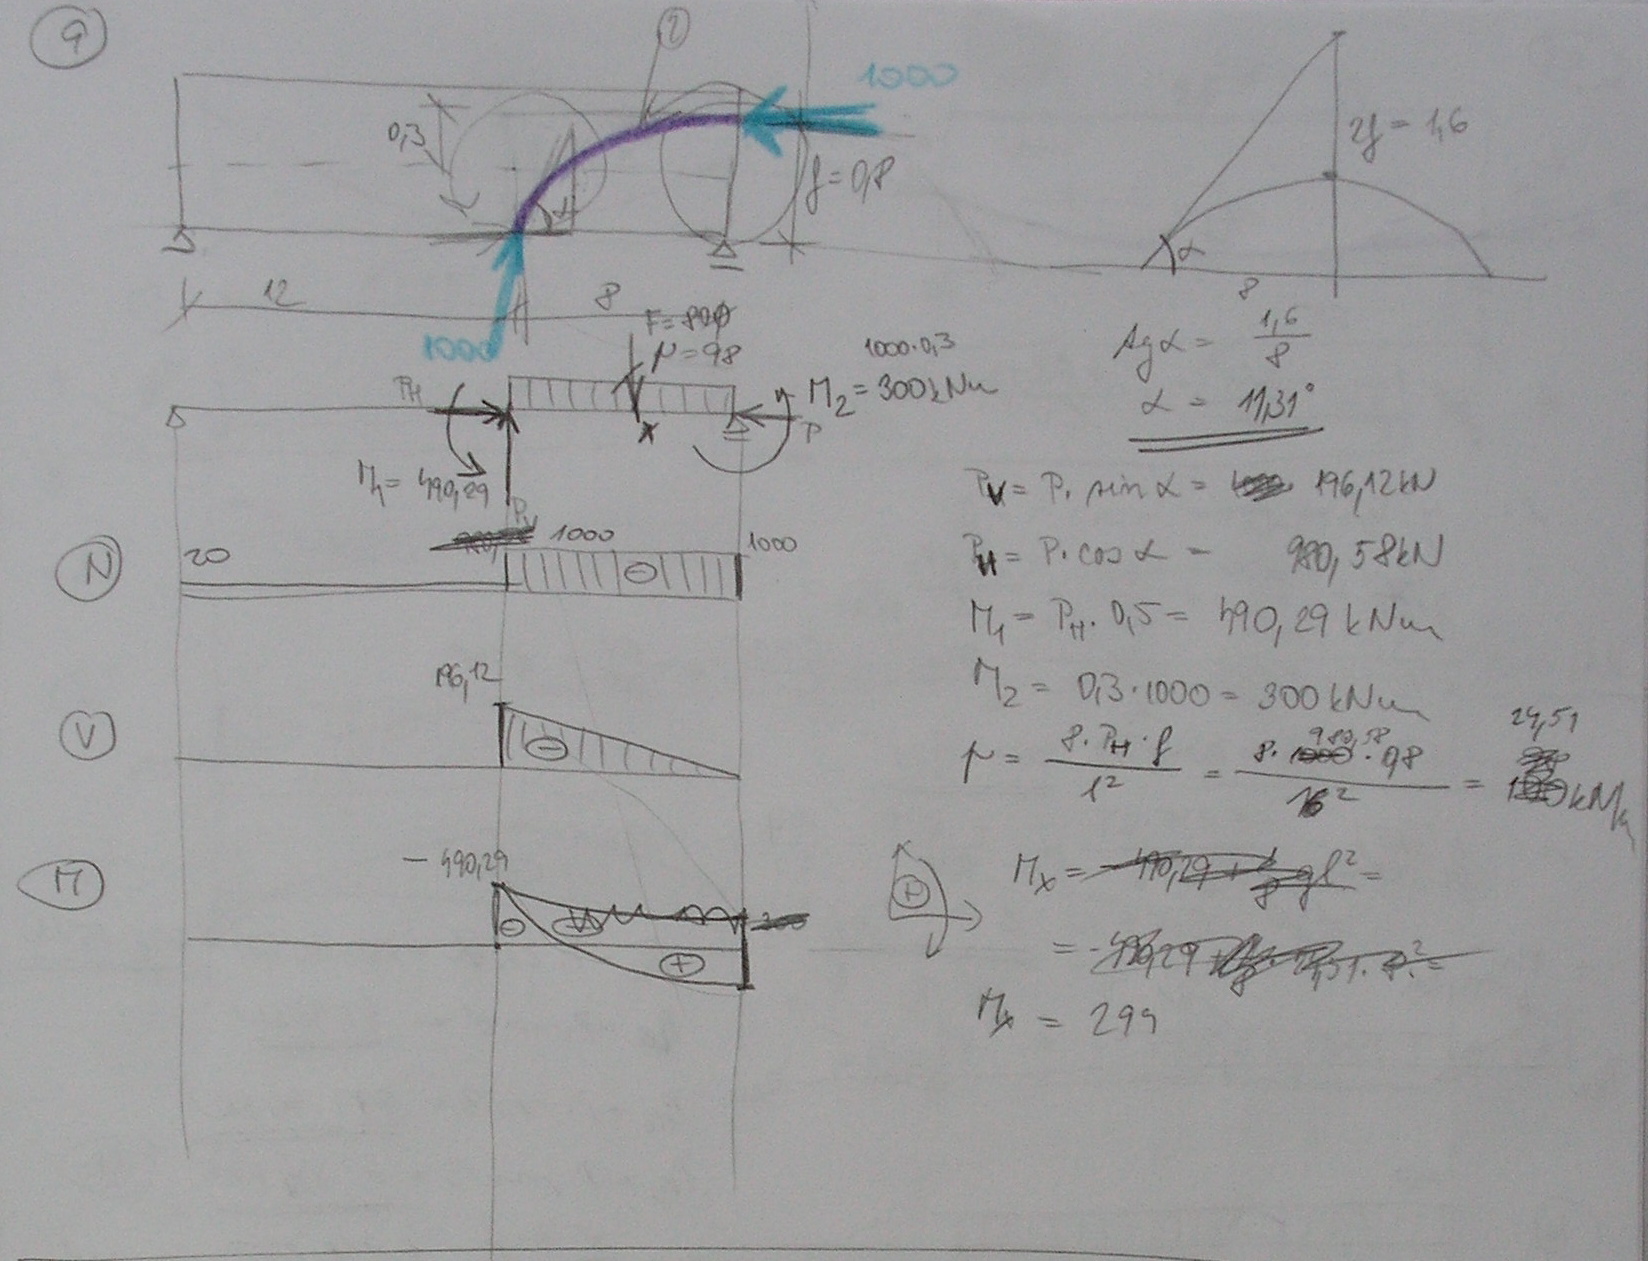 9
2
1000
0,3
f=0,8
2f = 1,6
α
α
12
8
8
1000
F=800
p=98
1000·0,3
M2=300kNm
PH
P
x
M1= 490,29
PV
tgα = 1,6/8
α = 11,31°
PV= P. sin α = 196,12kN
PH= P. cos α = 980,58kN
M1= PH. 0,5= 490,29 kNm
M2 = 0,3·1000 = 300kNm
p = 8. PH. f / l² = 8. 980,58 . 0,8 / 16² = 24,51 kN/m
N
20
1000
1000
-
V
196,12
-
M
- 490,29
-
+
+
Mx=
=
Mx = 294